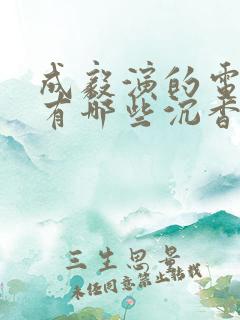 成毅演的电
有哪些沉香
三生思量
未经同意禁止转载